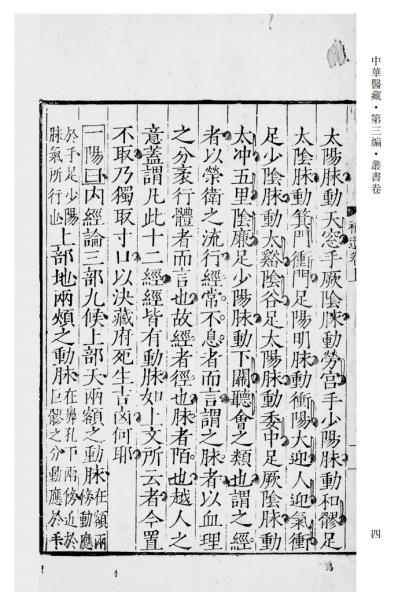 中華醫藏·第三編·叢書卷
太陽脉動天窓手厥陰脉動勞宫手少陽脉動和髎足
太陰脉動箕門衝門足陽明脉動衝陽大迎人迎氣衝
足少陰脉動太谿陰谷足太陽脉動委中足厥陰脉動
太冲五里陰廉足少陽脉動下關聽會之類也謂之經
者以榮衛之流行經常不息者而言謂之脉者以血理
之分衺行體者而言也故經者徑也脉者陌也越人之
意蓋謂凡此十二經經皆有動脉如上文所云者今置
不取乃獨取寸口以決藏府死生吉凶何耶
一陽曰内經論三部九候上部天兩額之動脉在額兩傍動應
於手足少陽脉氣所行也上部地兩頰之動脉在鼻孔下兩傍近於巨髎之分動應於手
四